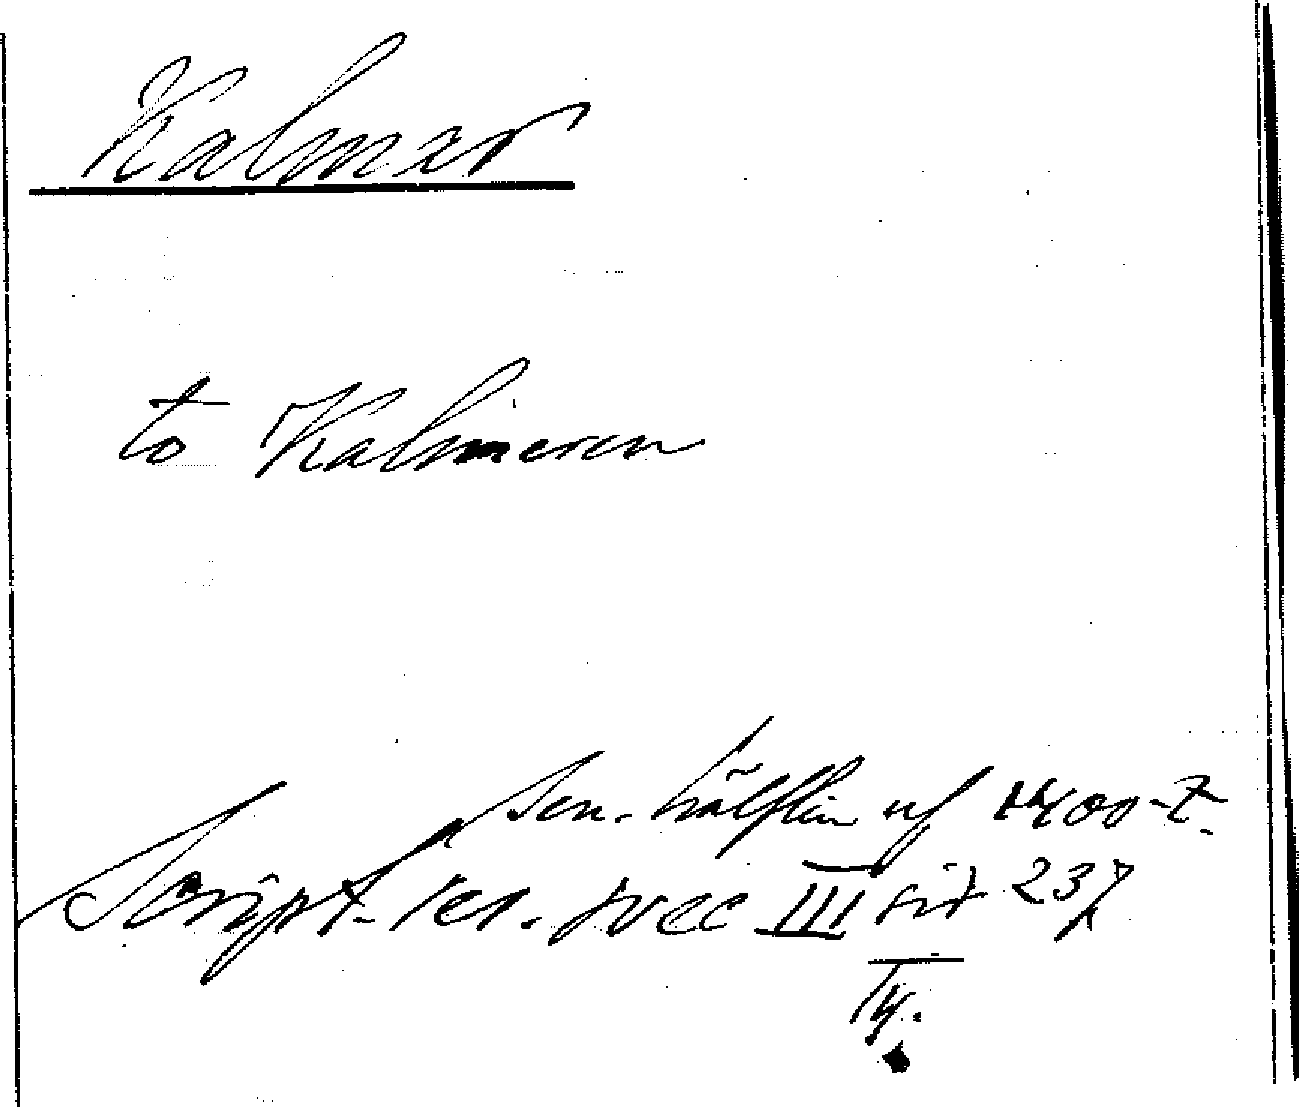 Kalmer
to Kalmeren
sen. hälften uf 1400-t.
Script. rer. svec III sid 237
Ty.